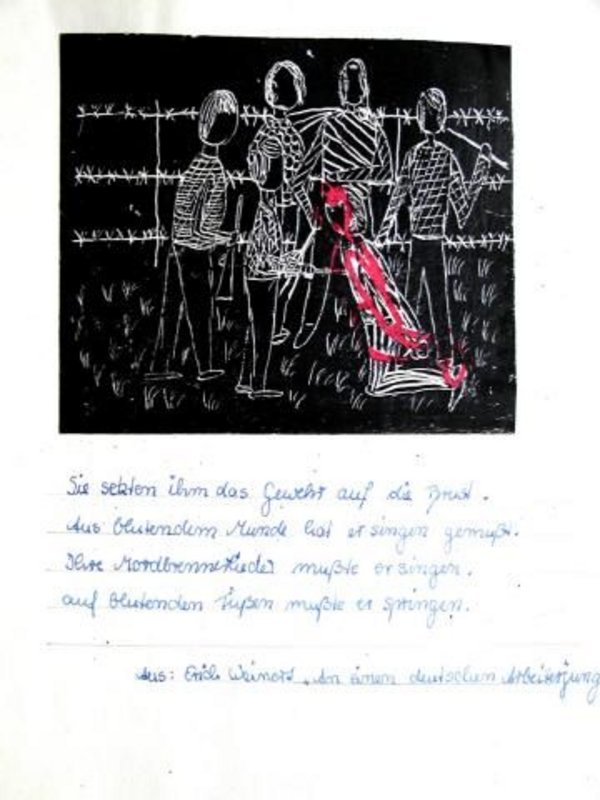 Sie setzten ihm das Gewehr auf die Brust.
Aus blutendem Munde hat er singen gemußt.
Ihre Mordbrennerlieder mußte er singen.
auf blutenden Füßen mußte er springen.
Aus: Erich Weinert „An einen deutschen Arbeiterjung